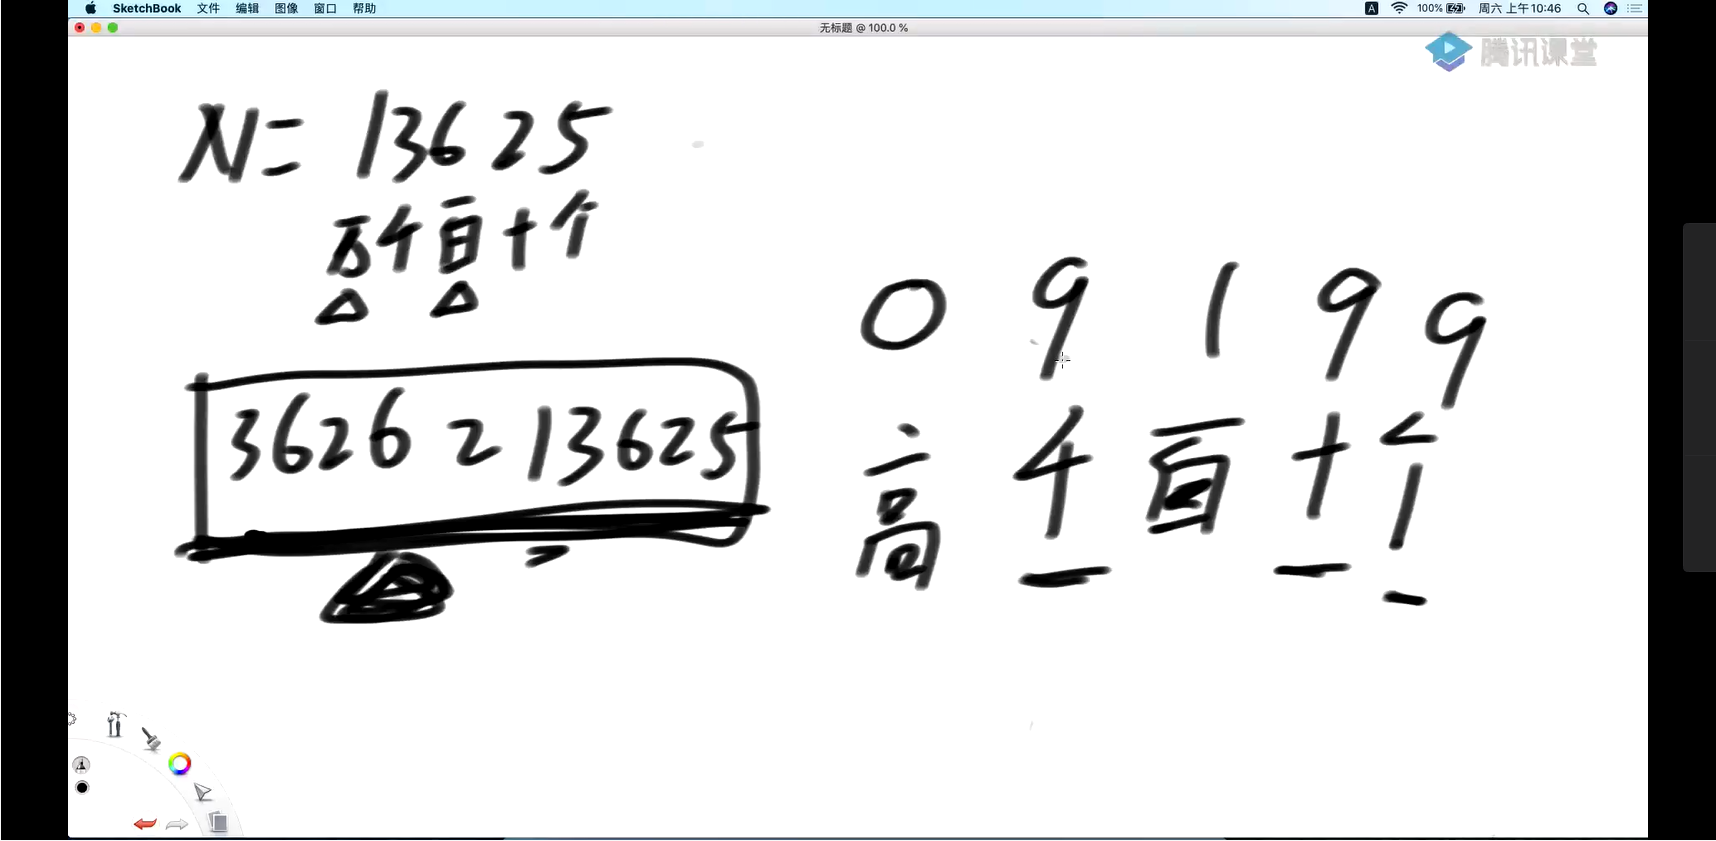 SketchBook 文件 编辑 图像 窗口 帮助 A 100% 周六 上午10:46
无标题 @ 100.0 %
腾讯课堂
N= 13625
万千百十个
3626 2 13625
0 9 1 9 9
高 千 百 十 个